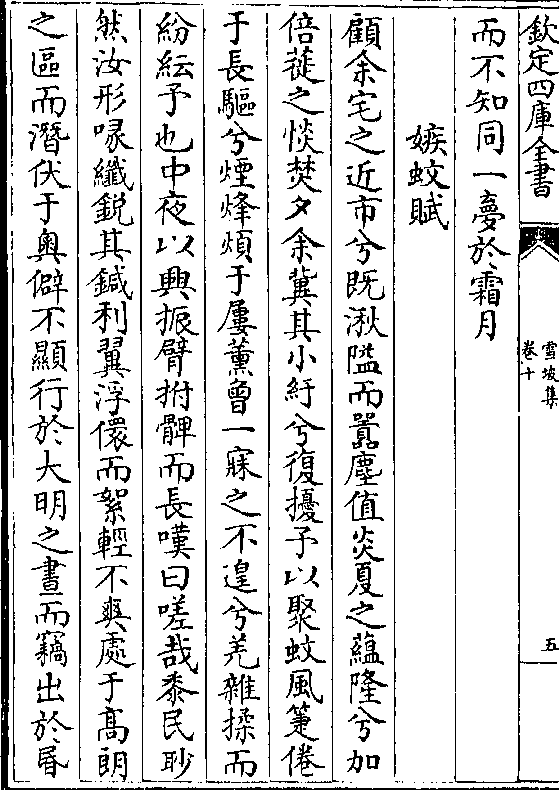 欽定四庫全書
雪坡集
卷十
五
而不知同一夢於霜月
嫉蚊賦
顧余宅之近市兮既湫隘而囂塵值炎夏之蘊隆兮加
倍蓰之惔焚夕余冀其小紓兮復擾予以聚蚊風箑倦
于長驅兮煙烽煩于屢薰曾一寐之不遑兮羌雜揉而
紛紜予也中夜以興振臂拊髀而長嘆曰嗟哉黍民眇
然汝形喙纖銳其鍼利翼浮儇而絮輕不爽處于髙朗
之區而潛伏于奥僻不顯行於大明之晝而竊出於昏